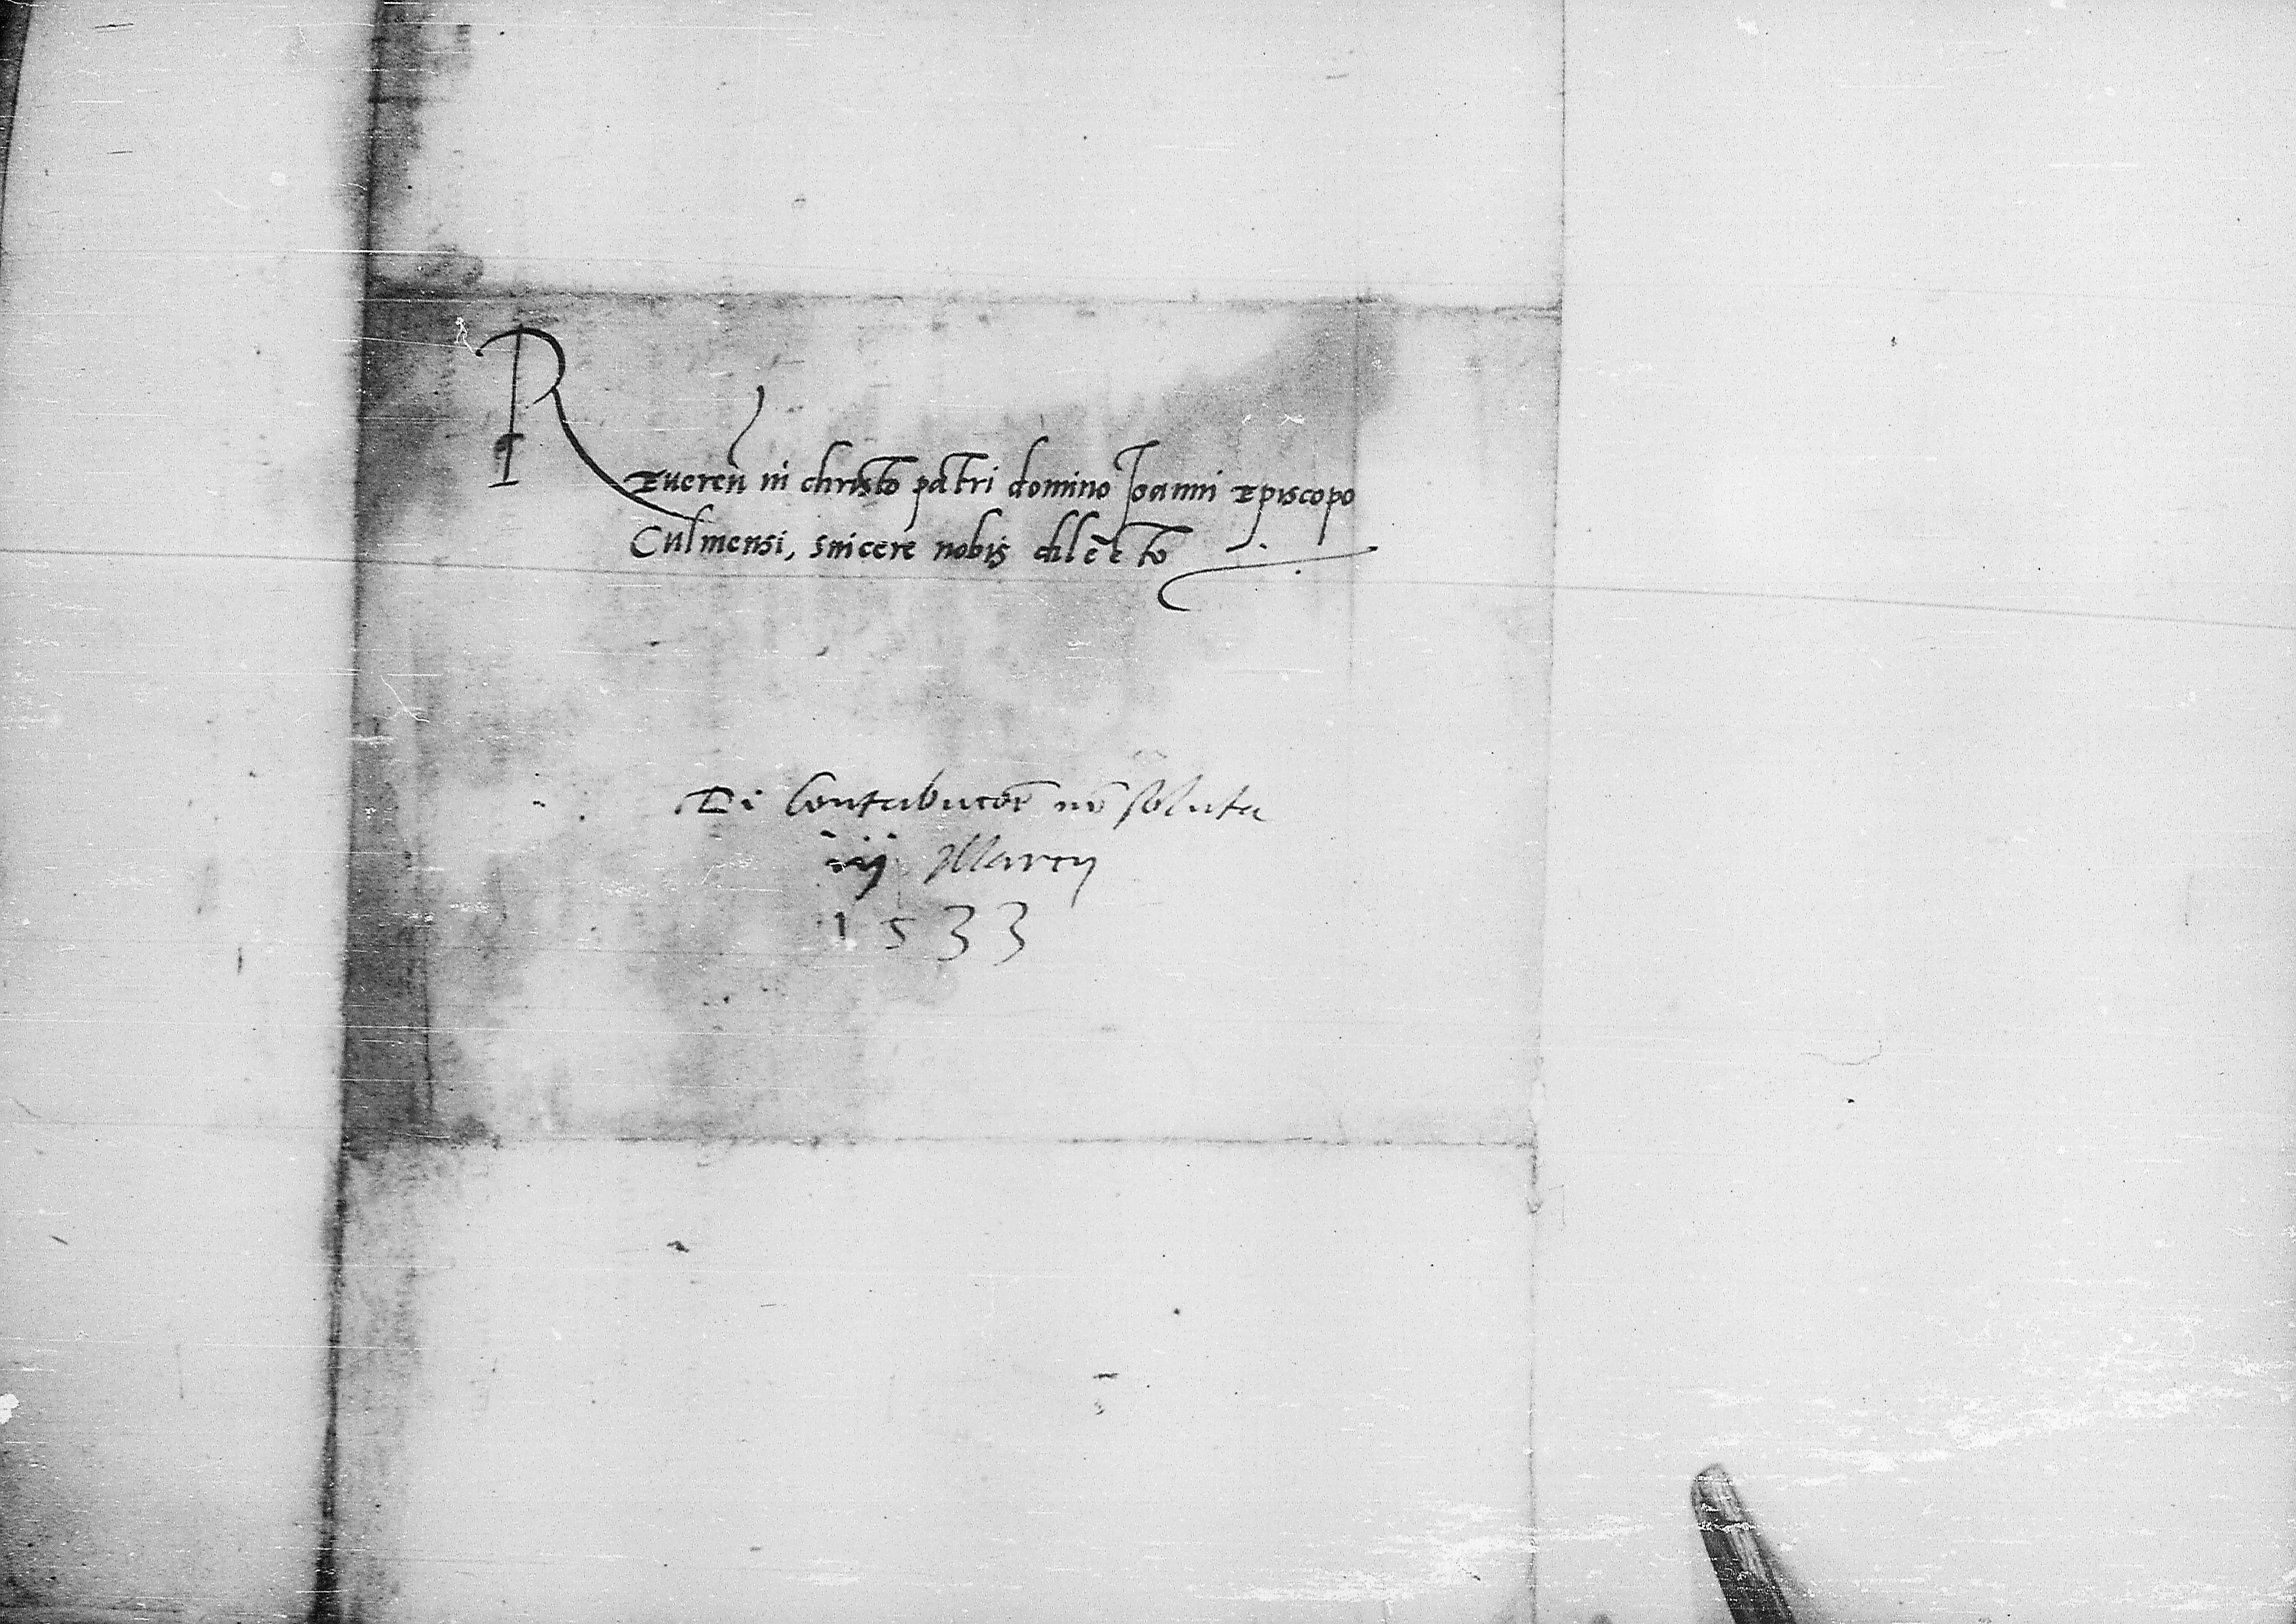 Reueren in christo patri domino Joanni Episcopo
Culmensi, sincere nobis dilecto
De Contribucoe no soluta
iij Marcy
1533